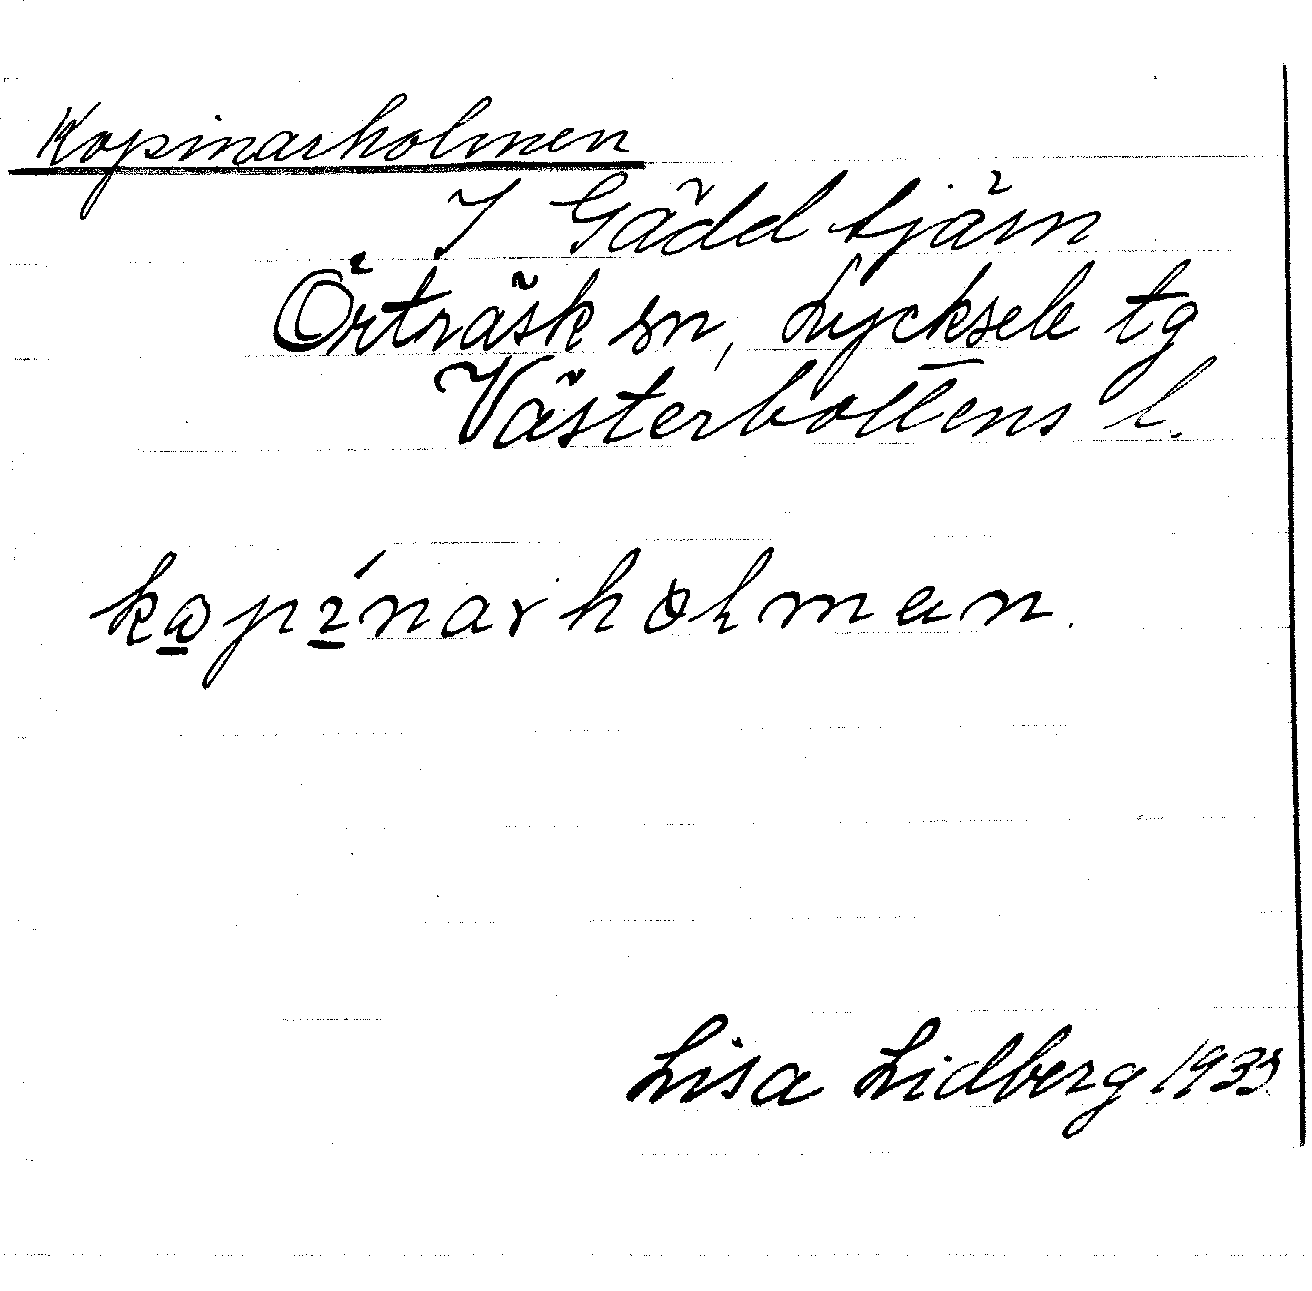 Kopinarholmen
I Gäddtjärn
Örträsk sn, Lycksele tg
Västerbottens l.
kopinarholman.
Lisa Lidberg